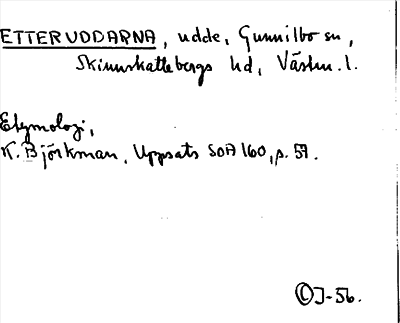 ETTERUDDARNA, udde, Gunnilbo sn,
Skinnskattebergs hd, Västm. l.
Etymologi,
K. Björkman, Uppsats SOA 160, p. 59.
J-56.